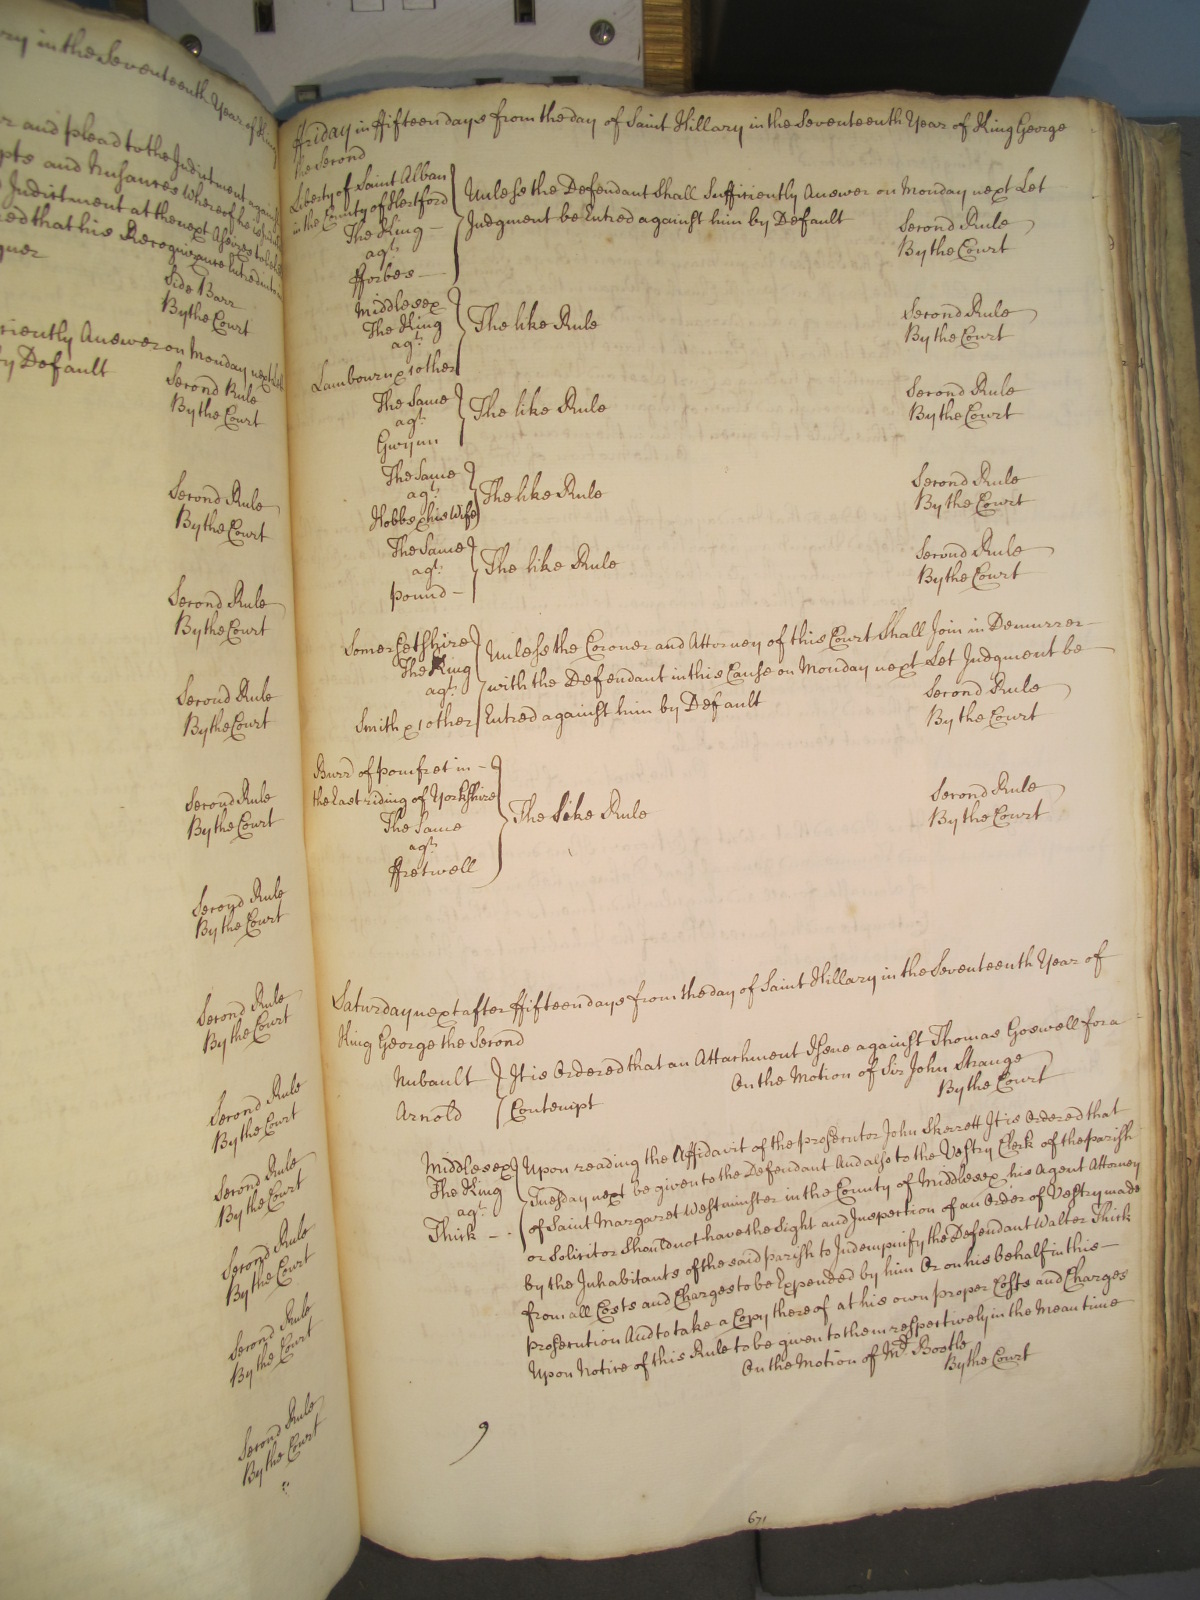 ry in the Seventeenth Year of King
er and plead to the Indictment against
Indictment at the next Assizes to be
By the Court
Side Barr
ciently Answer on Monday next Let
by Default
Second Rule
By the Court
Second Rule
By the Court
Second Rule
By the Court
Second Rule
By the Court
Second Rule
By the Court
Second Rule
By the Court
Second Rule
By the Court
Second Rule
By the Court
Second Rule
By the Court
Second Rule
By the Court
Second Rule
By the Court
Second Rule
By the Court
ffriday in ffifteen days from the day of Saint Hillary in the Seventeenth Year of King George
the Second
Liberty of Saint Alban
in the County of Hertford
The King
agt.
fforbes
Unless the Defendant Shall Sufficiently Answer on Monday next Let
Judgment be Entred against him by Default
Second Rule
By the Court
Middlesex
The King
agt.
Lambourn & 1 other
The like Rule
Second Rule
By the Court
The Same
agt.
Gwynn
The like Rule
Second Rule
By the Court
The Same
agt.
Hobbs & his Wife
The like Rule
Second Rule
By the Court
The Same
agt.
pound
The like Rule
Second Rule
By the Court
Somersetshire
The King
agt.
Smith & 1 other
Unless the Coroner and Attorney of this Court Shall Join in Demurrer
with the Defendant in this Cause on Monday next Let Judgment be
Entred against him by Default
Second Rule
By the Court
Burr of pomfret in
the East riding of Yorkshire
The Same
agt.
ffretwell
The like Rule
Second Rule
By the Court
Saturday next after ffifteen days from the day of Saint Hillary in the Seventeenth Year of
King George the Second
Nubault
Arnold
It is Ordered that an Attachment Issue against Thomas Goswell for a
Contempt
On the Motion of Sir John Strange
By the Court
Middlesex
The King
agt.
Thick
Upon reading the Affidavit of the prosecutor John Skerrett It is Ordered that
Tuesday next be given to the Defendant And also to the Vestry Clerk of the parish
of Saint Margaret Westminster in the County of Middlesex his Agent Attorney
or Solicitor Should not have the Sight and Inspection of an Order of Vestry made
by the Inhabitants of the said parish to Indempnify the Defendant Walter Thick
from all Costs and Charges to be Expended by him Or on his behalf in this
prosecution And to take a Copy thereof at his own proper Costs and Charges
Upon Notice of this Rule to be given to them respectively in the Mean time
On the Motion of Mr. Bootle
By the Court
9
671